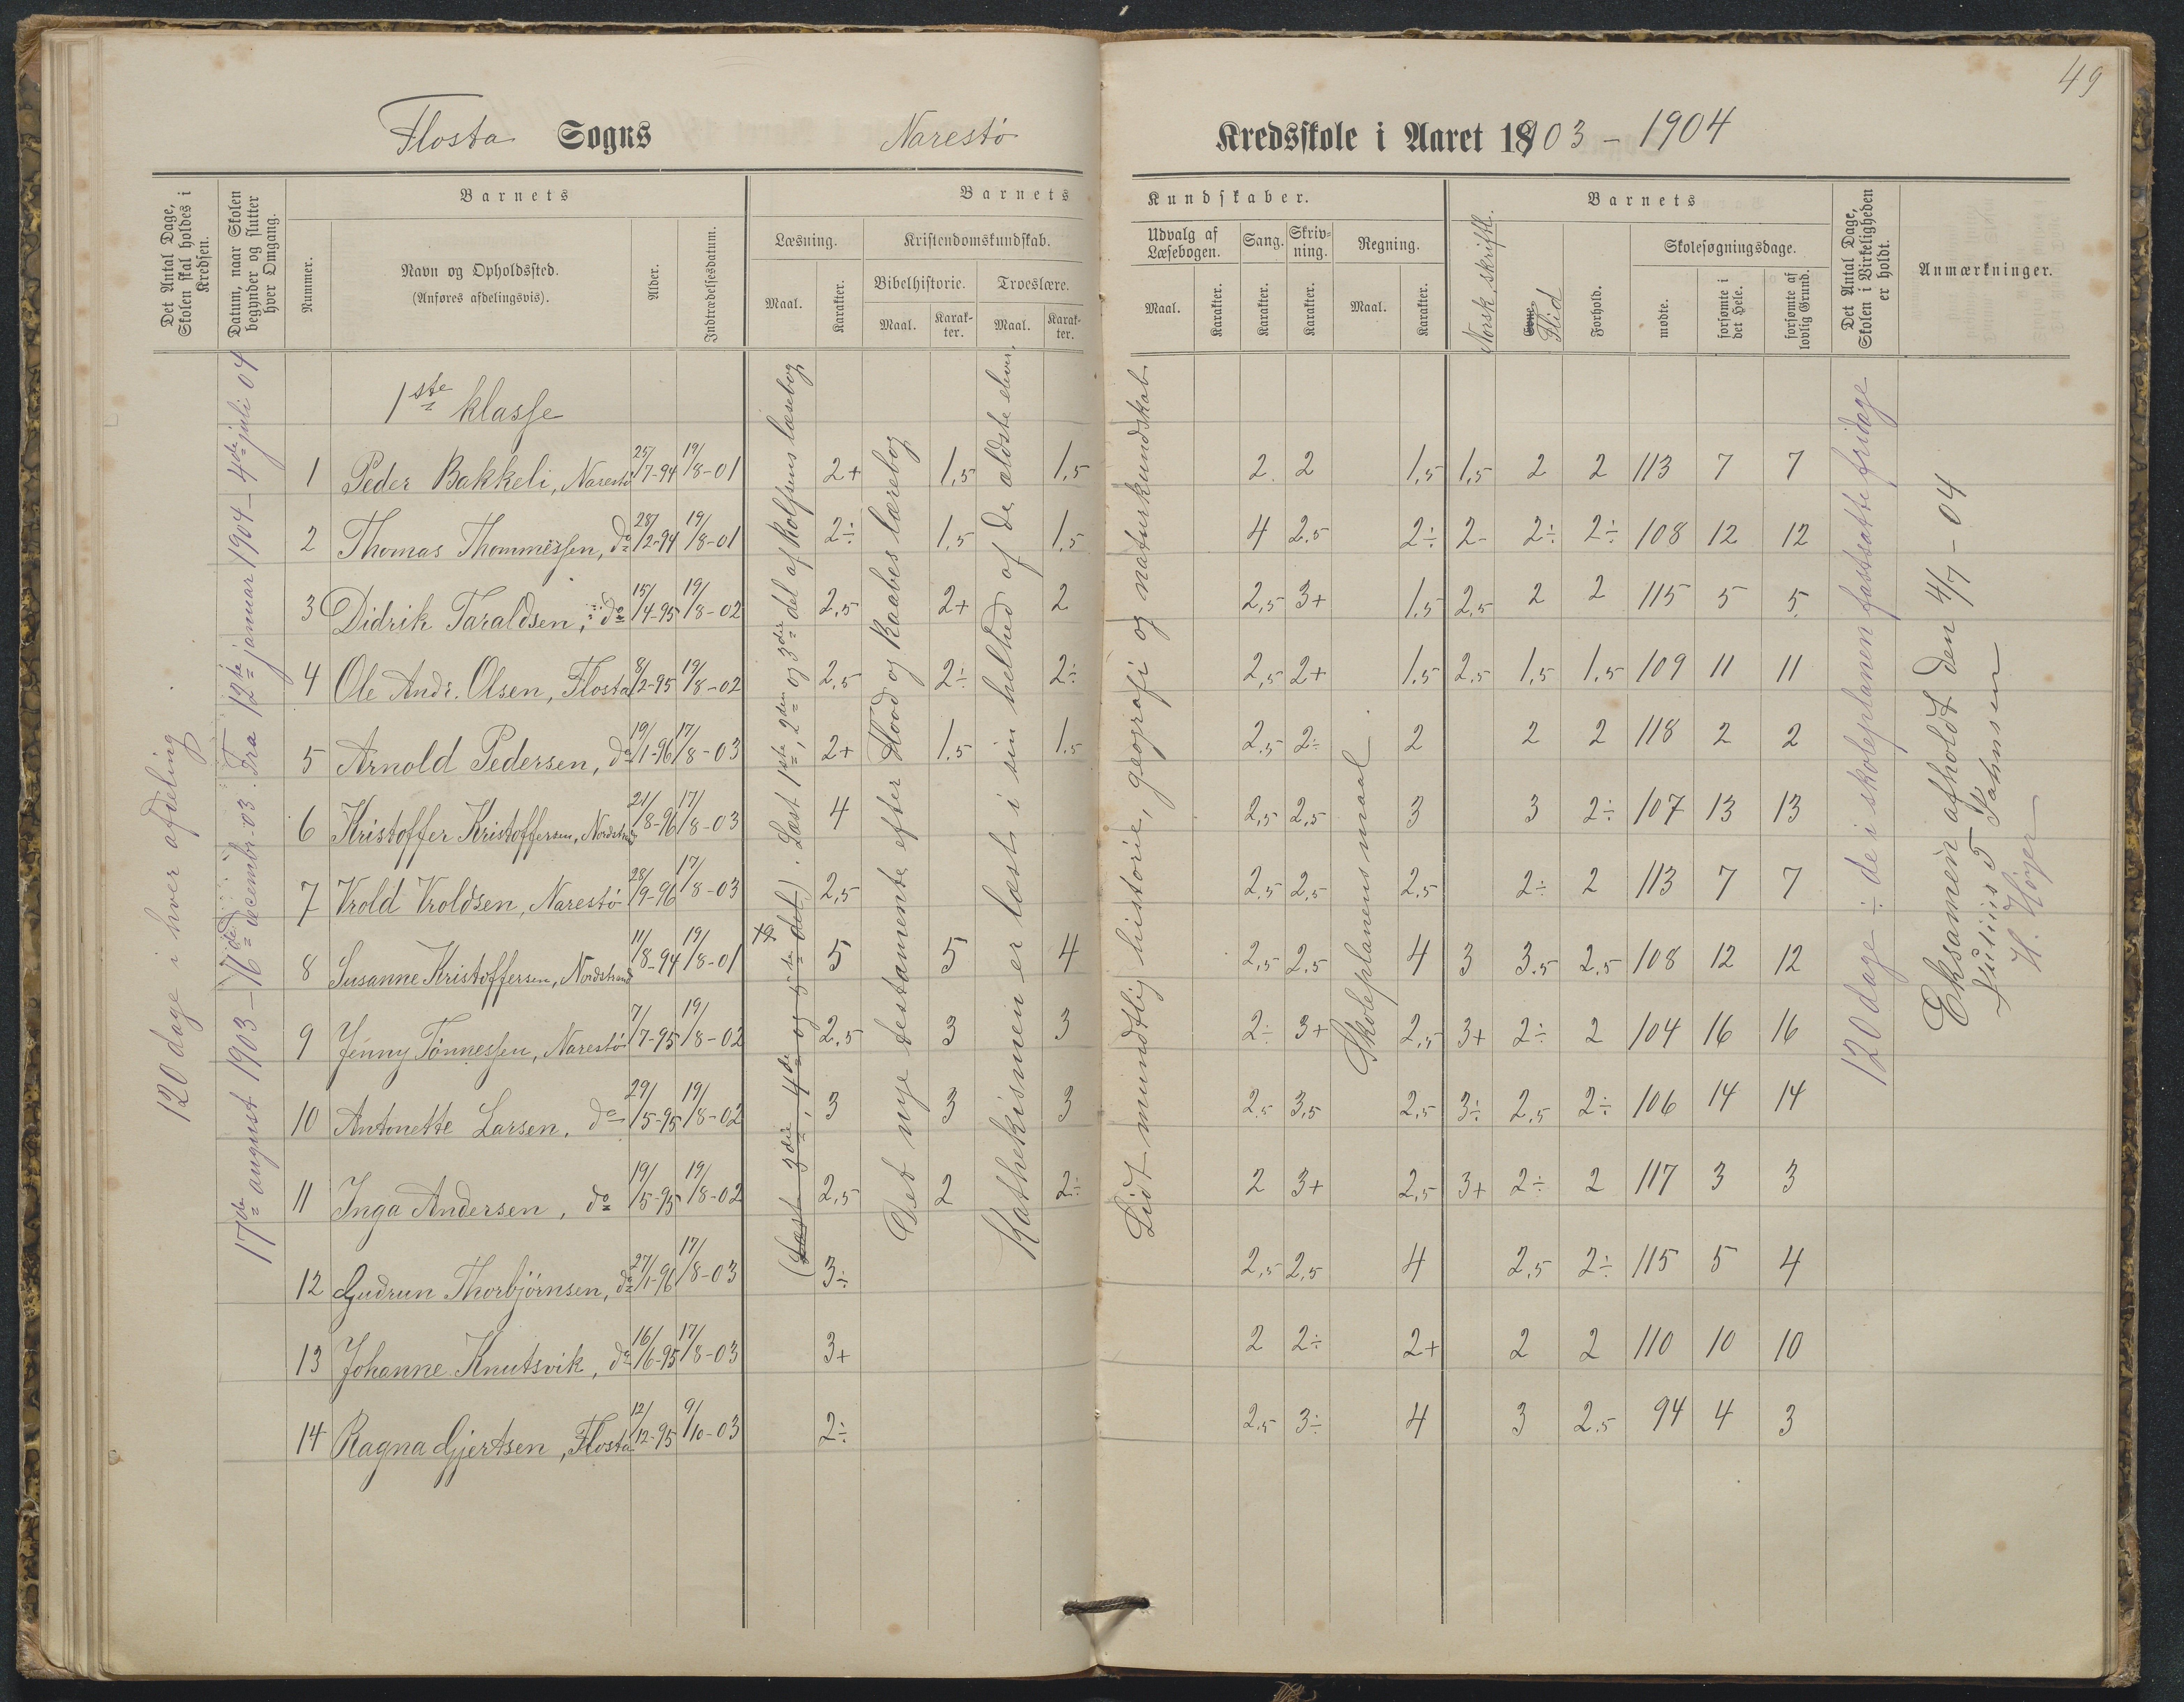 49
Flosta Sogns Narestö Kredsskole i Aaret 1903 – 1904
Det Antal Dage, Skolen skal holdes i Kredsen.
Datum, naar Skolen begynder og slutter hver Omgang.
Nummer.
Barnets
Navn og Opholdssted.
(Anføres afdelingsvis).
Alder.
Indtrædelsesdatum.
Barnets Kundskaber.
Læsning.
Maal. Karakter.
Kristendomskundskab.
Bibelhistorie. Troeslære.
Maal. Karakter. Maal. Karakter.
Udvalg af Læsebogen.
Maal. Karakter.
Sang. Karakter.
Skrivning. Karakter.
Regning.
Maal. Karakter.
Norsk skriftl.
Barnets
Evne. Flid
Forhold.
Skolesøgningsdage.
mødte.
forsømte i det Hele.
forsømte af lovlig Grund.
Det Antal Dage, Skolen i Virkeligheden er holdt.
Anmærkninger.
120 dage i hver afdeling.
17de august 1903 – 16de decembr. 03. Fra 12te januar 1904 – 4de juli 04
1ste klasse
1 Peder Bakkeli, Narestö 25/7-94 19/8-01 2+ 1,5 1,5 2 2 1,5 1,5 2 2 113 7 7
2 Thomas Thommessen, do 28/2-94 19/8-01 2÷ 1,5 1,5 4 2.5 2÷ 2- 2÷ 2÷ 108 12 12
3 Didrik Taraldsen, do 15/4-95 19/8-02 2,5 2+ 2 2,5 3+ 1,5 2,5 2 2 115 5 5
4 Ole Andr. Olsen, Flosta 8/2-95 19/8-02 2,5 2÷ 2÷ 2,5 2+ 1,5 2,5 1,5 1,5 109 11 11
5 Arnold Pedersen, do 19/1-96 17/8-03 2+ 1.5 1.5 2,5 2÷ 2 2 2 118 2 2
6 Kristoffer Kristoffersen, Nordstrand 21/8-96 17/8-03 4 2,5 2,5 3 3 2÷ 107 13 13
7 Vrold Vroldsen, Narestö 28/9-96 17/8-03 2,5 2,5 2,5 2,5 2÷ 2 113 7 7
8 Susanne Kristoffersen, Nordstrand 11/8-94 19/8-01 5 5 4 2,5 2,5 4 3 3.5 2.5 108 12 12
9 Jenny Tönnessen, Narestö 7/7-95 19/8-02 2,5 3 3 2÷ 3+ 2,5 3+ 2÷ 2 104 16 16
10 Antonette Larsen, do 29/5-95 19/8-02 3 3 3 2,5 3,5 2,5 3÷ 2,5 2÷ 106 14 14
11 Inga Andersen, do 19/5-95 19/8-02 2,5 2 2÷ 2 3+ 2,5 3+ 2÷ 2 117 3 3
12 Gudrun Thorbjörnsen, do 27/1-96 17/8-03 3÷ 2,5 2,5 4 2,5 2÷ 115 5 4
13 Johanne Knutsvik, do 16/6-95 17/8-03 3+ 2 2÷ 2+ 2 2 110 10 10
14 Ragna Gjertsen, Flosta 12/12-95 9/10-03 2÷ 2,5 3÷ 4 3 2.5 94 4 3
(Læste 3die, 4de og 5te del). Læst 1ste, 2den og 3die del af Rolfsens læsebog
Det nye testamente efter Hood og Kaabes lærebog
Kathekismen er læst i sin helhed af de ældste elever.
Lidt mundtlig historie, geografi og naturkundskab
Skoleplanens maal.
120 dage ÷ de i skoleplanen fastsatte fridage
Eksamen afholdt den 4/7 – 04
Julius T Johnsen
H.